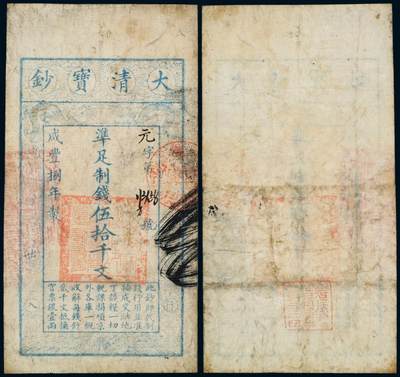 大清寶鈔
元字第
號
準足制錢伍拾千文
咸豐捌年製
此鈔即代制
錢行用並准
按成交納地
丁錢糧一切
稅課捐項京
外各庫一概
收解每錢鈔
貳千文抵換
官票銀壹兩